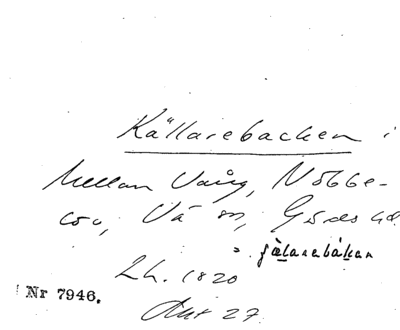 Källarebacken i
Mellan Vång, Nöbbe-
löv, Vä sn, Gärds hd.
2h. 1820
Nr 7946.
Akt 27